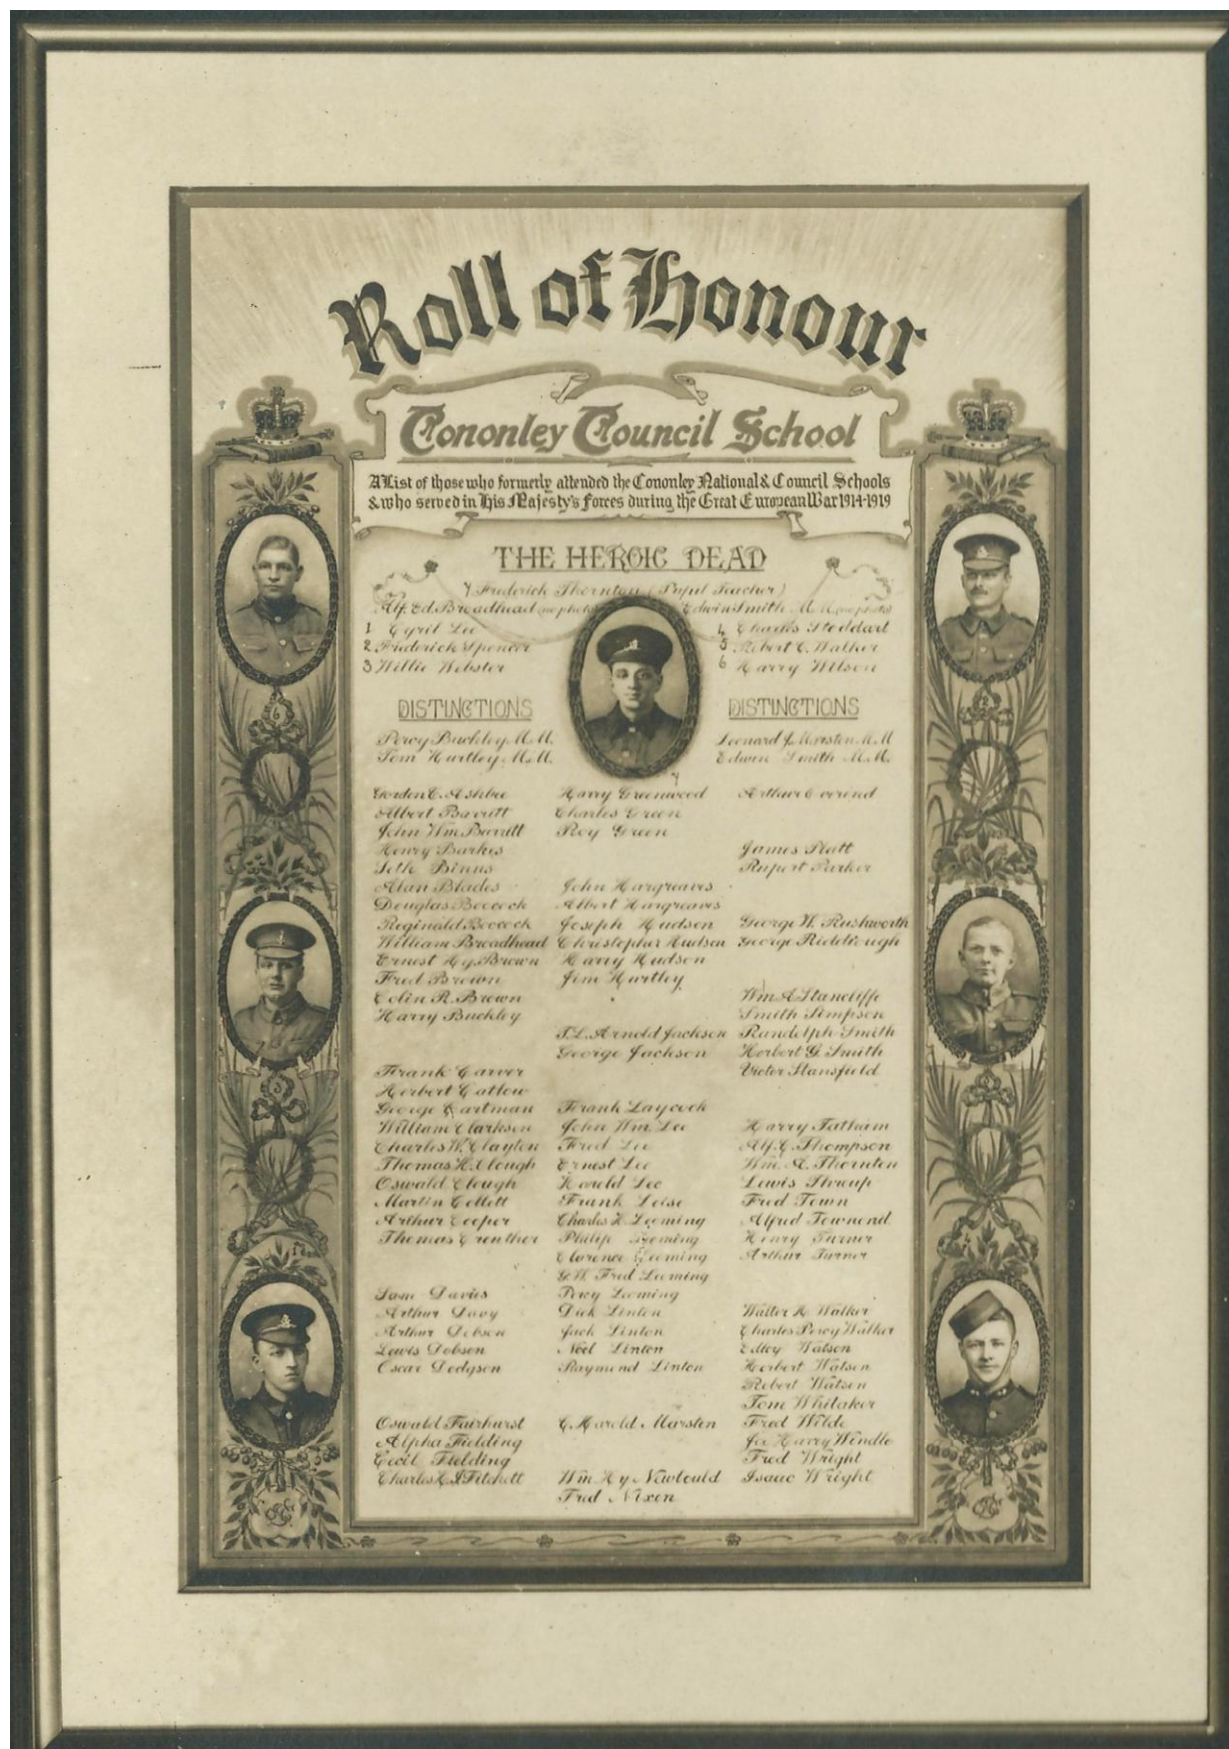 Roll of Honour
Cononley Council School
A List of those who formerly attended the Cononley National & Council Schools
& who served in His Majesty's Forces during the Great European War 1914-1919
THE HEROIC DEAD
7 Frederick Thornton (Pupil Teacher)
Alf. Ed. Broadhead (no photo)
1 Cyril Lee
2 Frederick Spencer
3 Willie Webster
Edwin Smith M.M. (no photo)
4 Charles Stoddart
5 Robert C. Walker
6 Harry Wilson
DISTINCTIONS
Percy Buckley. M.M.
Tom Hartley. M.M.
DISTINCTIONS
Leonard J. Marsten. M.M
Edwin Smith M.M.
7
Gordon C. Ashbee
Albert Barritt
John Wm Barritt
Henry Barkes
Seth Binns
Alan Blades
Douglas Boocock
Reginald Boocock
William Broadhead
Ernest Hy. Brown
Fred Brown
Colin R. Brown
Harry Buckley
Frank Carver
Herbert Catlow
George Cartman
William Clarkson
Charles W. Clayton
Thomas H. Clough
Oswald Clough
Martin Collett
Arthur Cooper
Thomas Crowther
Sam Davies
Arthur Davy
Arthur Dobson
Lewis Dobson
Oscar Dodgson
Oswald Fairhurst
Alpha Fielding
Cecil Fielding
Charles H. J. Fitchett
Harry Greenwood
Charles Green
Roy Green
John Hargreaves
Albert Hargreaves
Joseph Hudson
Christopher Hudson
Harry Hudson
Jim Hartley
T.L. Arnold Jackson
George Jackson
Frank Laycock
John Wm. Lee
Fred Lee
Ernest Lee
Harold Lee
Frank Loise
Charles H. Leeming
Philip Leeming
Clarence Leeming
G.W. Fred Leeming
Percy Leeming
Dick Linton
Jack Linton
Noel Linton
Raymond Linton
C. Harold Marsten
Wm Hy Newbould
Fred Nixon
Arthur Overend
James Platt
Rupert Parker
George W. Rushworth
George Riddiough
Wm A Stancliffe
Smith Simpson
Randolph Smith
Herbert G. Smith
Victor Stansfield
Harry Tatham
Alf. G. Thompson
Wm. A. Thornton
Lewis Throup
Fred Town
Alfred Townend
Henry Turner
Arthur Turner
Walter H. Walker
Charles Percy Walker
Edley Watson
Herbert Watson
Robert Watson
Tom Whitaker
Fred Wilde
Joe Harry Windle
Fred Wright
Isaac Wright